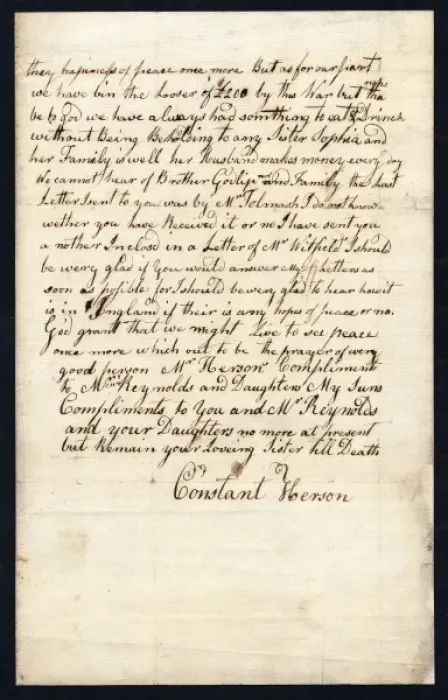 they hapiness of peace once more But as for our part
we have bin the Looser of £200 by this War but thanks
be to God we have always had somthing to eat & Drinck
without Being Beholding to any Sister Sophia and
her Family is well her Husband makes money every day
We cannot hear of Brother and Family the Last
Letter I sent to you was by Mr Tolmash I do not know
wether you have Received it or no I have sent you
a nother Inclosd in a Letter of Mr Witfield I should
be wery glad if You would answer My Letters as
soon as posible for I should be wery glad to hear how it
is in England if their is any hopes of peace or no.
God grant that we might Live to see peace
once more which out to be the prayer of wery
good person Mr Hersons Compliment
to Mr Reynolds and Daughters My Suns
Compliments to You and Mr Reynolds
and your Daughters no more at present
but Remain your Loveing Sister till Death
Constant Herson